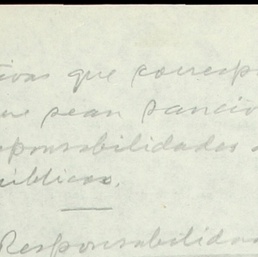 tivas que corresp
que sean sancio
sponsabilidades
públicas.
Responsabilida